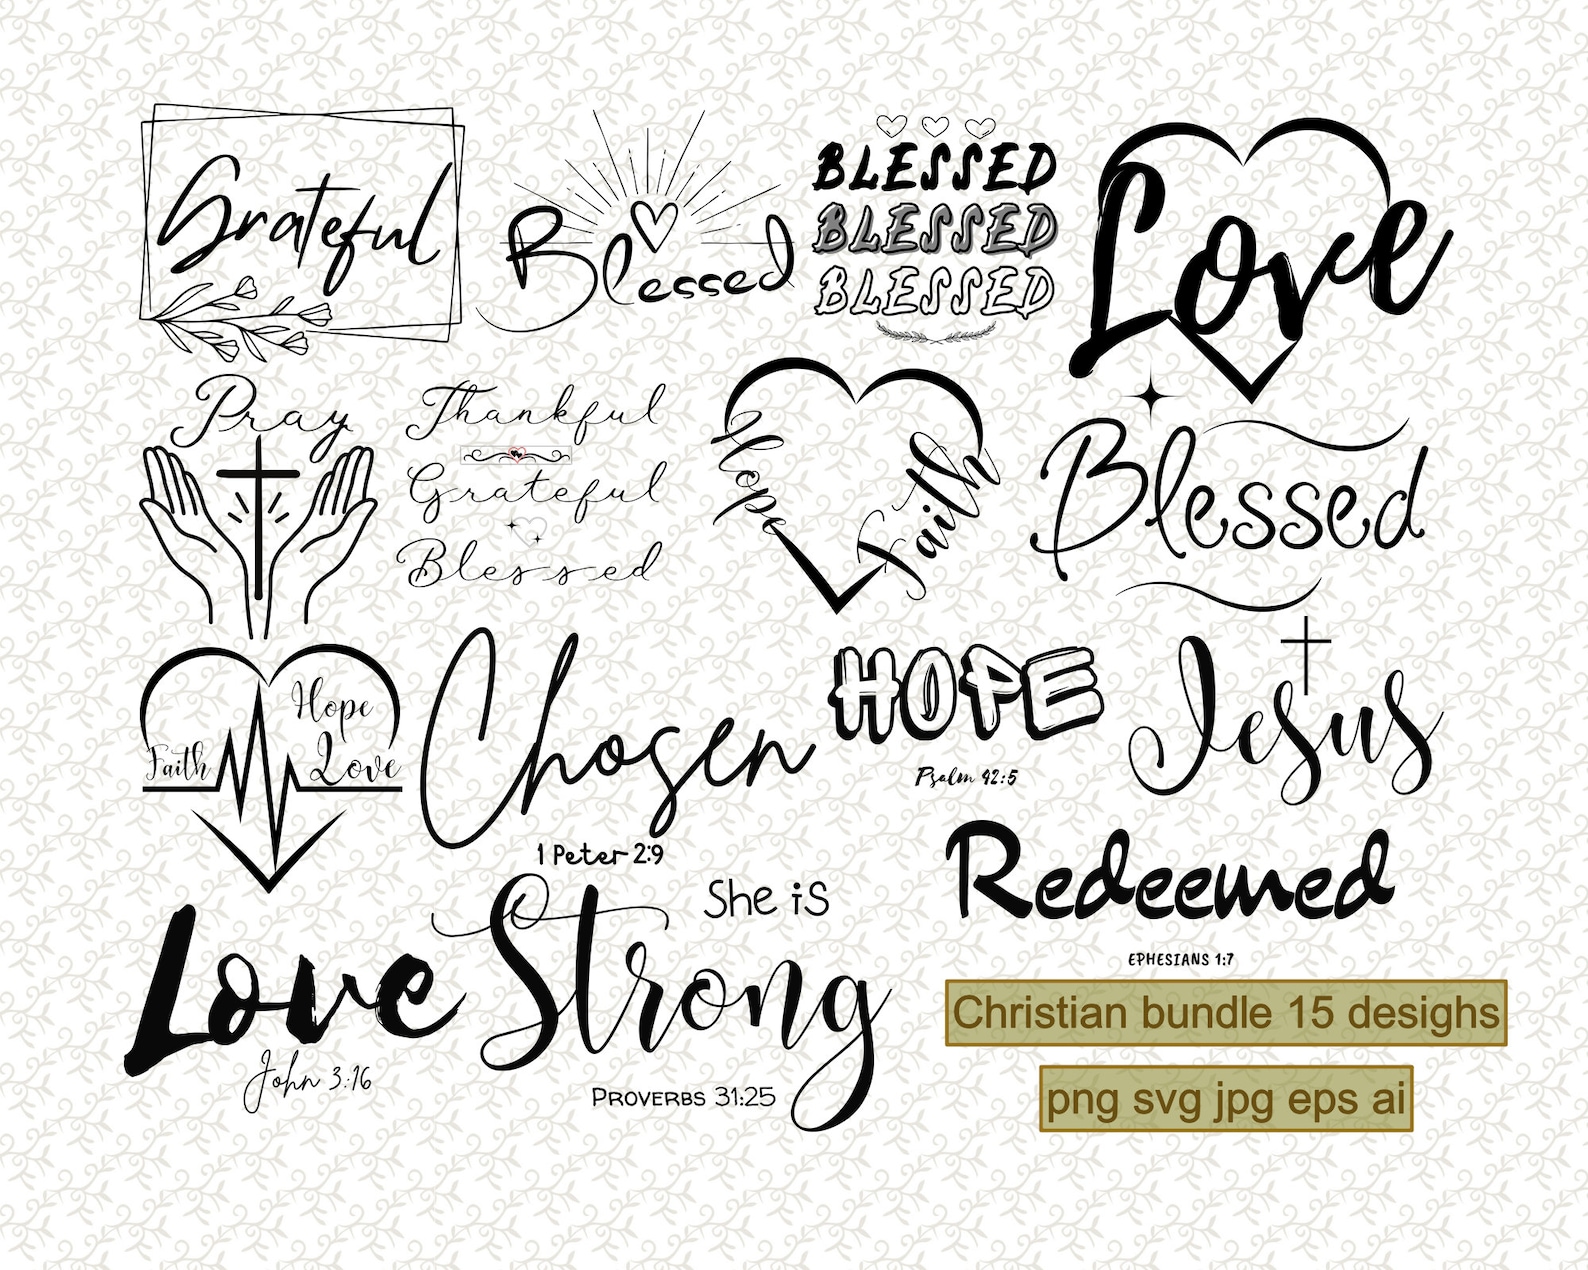 Grateful
Blessed
BLESSED
BLESSED
BLESSED
Love
Pray
Thankful
Grateful
Blessed
Hope
Faith
Blessed
Faith
Hope
Love
Chosen
1 Peter 2:9
HOPE
Psalm 42:5
Jesus
Redeemed
EPHESIANS 1:7
Love
John 3:16
She is
Strong
PROVERBS 31:25
Christian bundle 15 desighs
png svg jpg eps ai